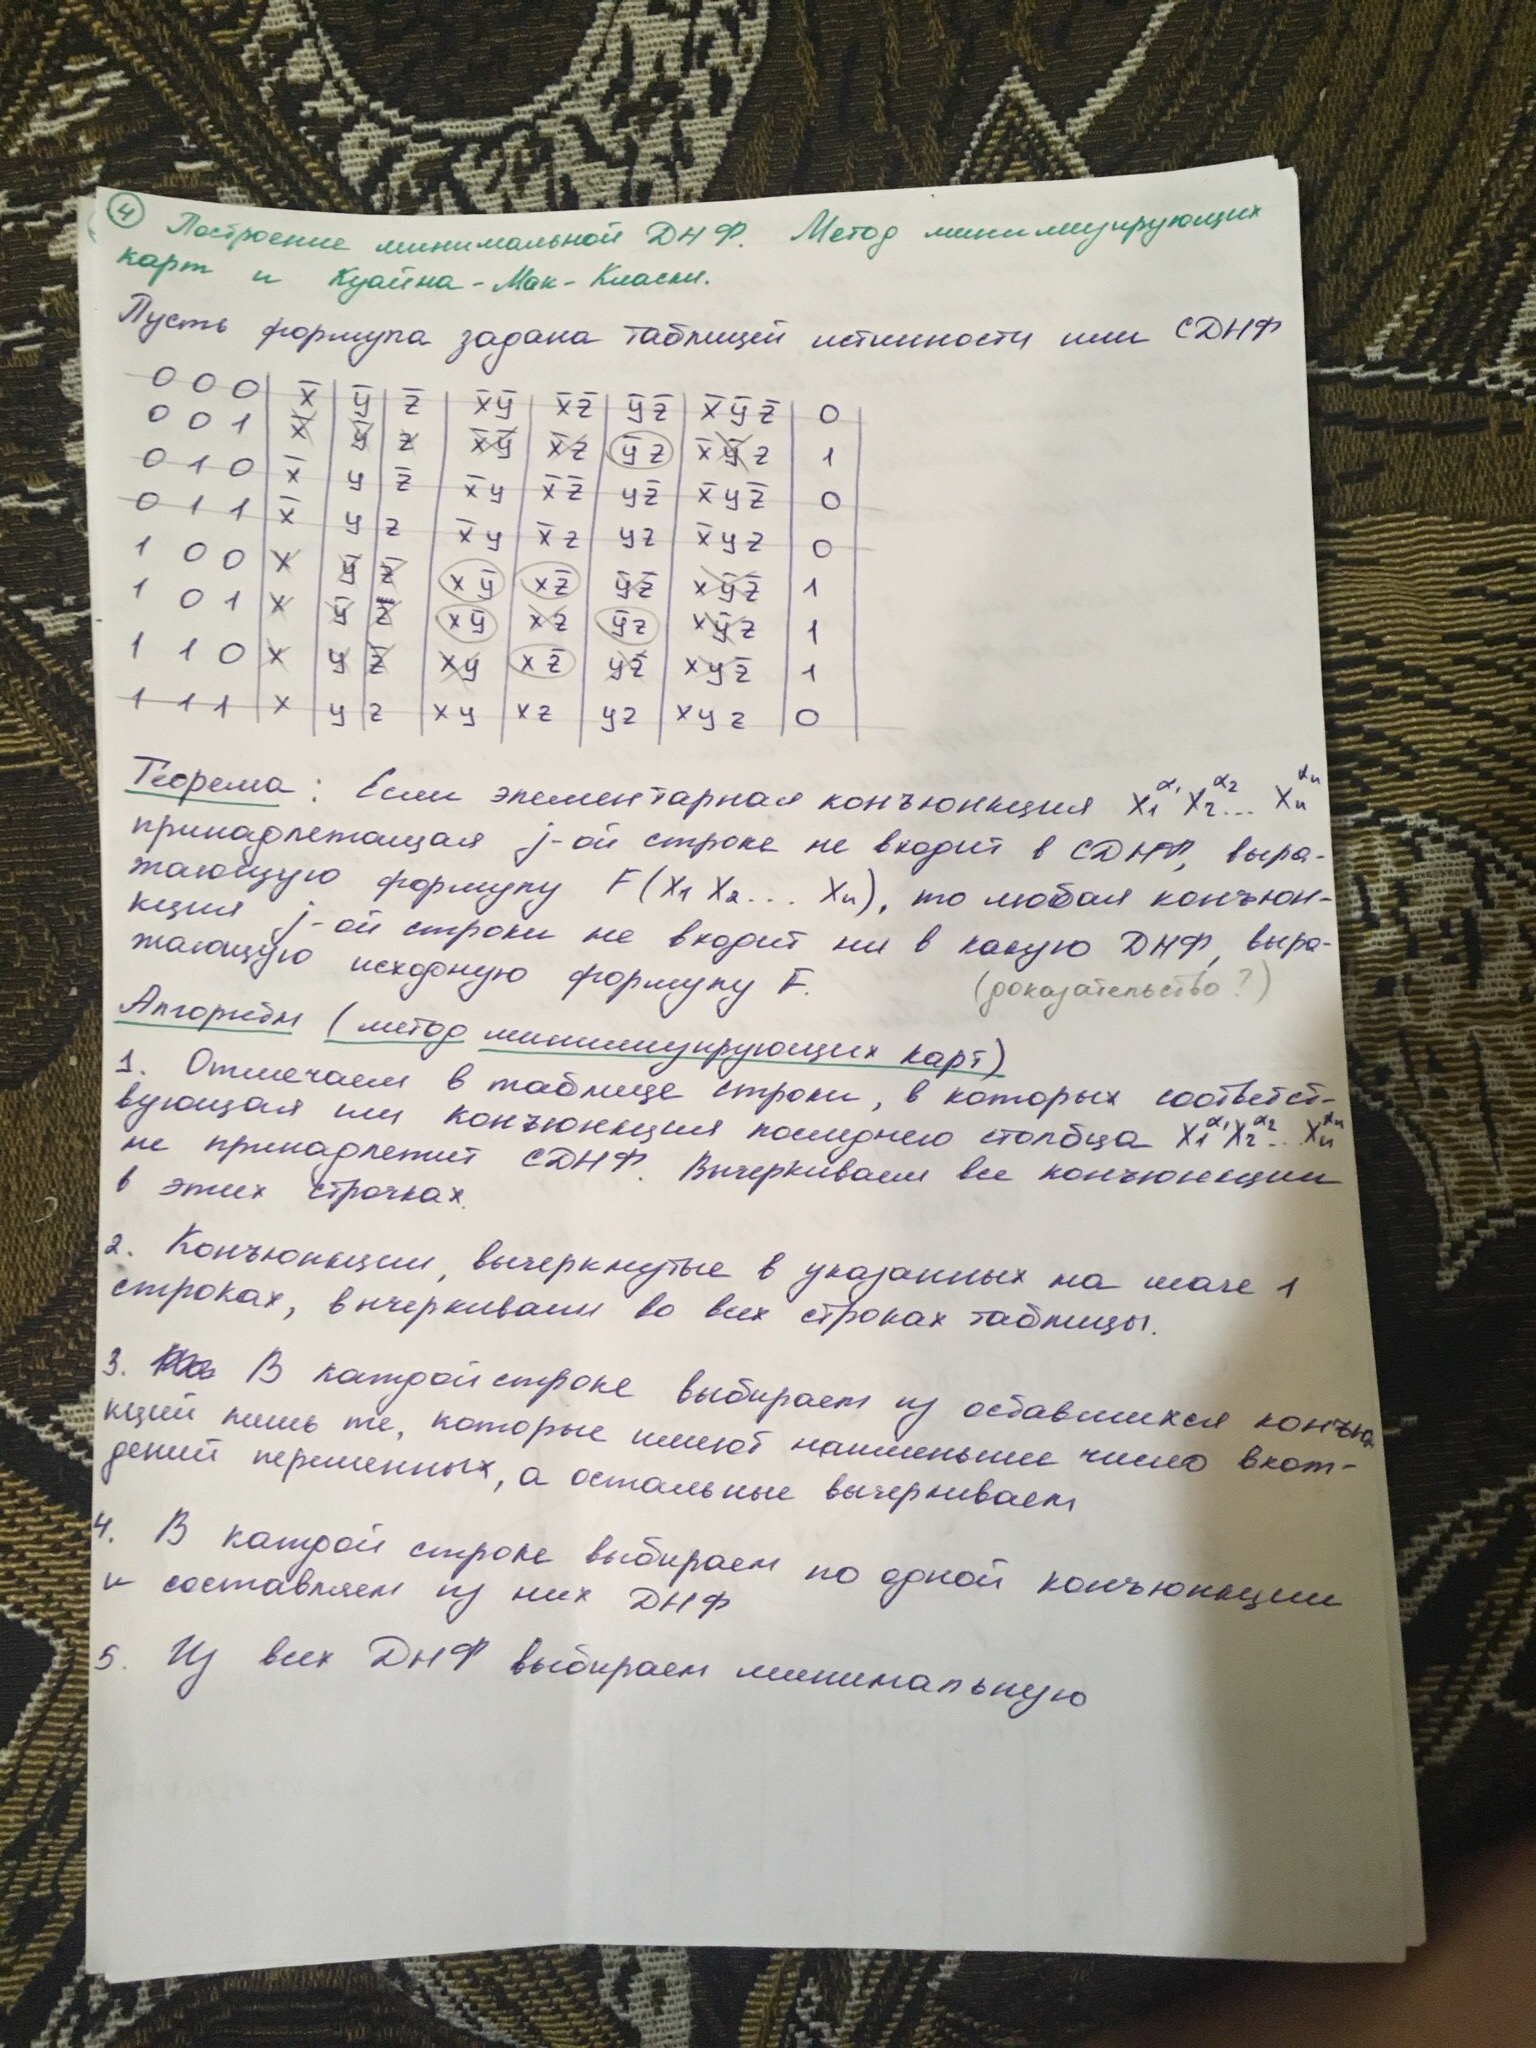 ④ Построение минимальной ДНФ. Метод минимизирующих
карт и Куайна-Мак-Класки.
Пусть формула задана таблицей истинности или СДНФ
0 0 0 | x̄ | ȳ | z̄ | x̄ȳ | x̄z̄ | ȳz̄ | x̄ȳz̄ | 0
0 0 1 | x̄ | ȳ | z | x̄ȳ | x̄z | ȳz | x̄ȳz | 1
0 1 0 | x̄ | y | z̄ | x̄y | x̄z̄ | yz̄ | x̄yz̄ | 0
0 1 1 | x̄ | y | z | x̄y | x̄z | yz | x̄yz | 0
1 0 0 | x | ȳ | z̄ | xȳ | xz̄ | ȳz̄ | xȳz̄ | 1
1 0 1 | x | ȳ | z | xȳ | xz | ȳz | xȳz | 1
1 1 0 | x | y | z̄ | xy | xz̄ | yz̄ | xyz̄ | 1
1 1 1 | x | y | z | xy | xz | yz | xyz | 0
Теорема: Если элементарная конъюнкция X₁^α₁ X₂^α₂ ... Xₙ^αₙ
принадлежащая j-ой строке не входит в СДНФ, выра-
жающую формулу F(X₁ X₂ ... Xₙ), то любая конъюн-
кция j-ой строки не входит ни в какую ДНФ, выра-
жающую исходную формулу F. (доказательство?)
Алгоритм (метод минимизирующих карт)
1. Отмечаем в таблице строки, в которых соответст-
вующая им конъюнкция последнего столбца X₁^α₁ X₂^α₂ .. Xₙ^αₙ
не принадлежит СДНФ. Вычеркиваем все конъюнкции
в этих строчках.
2. Конъюнкции, вычеркнутые в указанных на шаге 1
строках, вычеркиваем во всех строках таблицы.
3. В каждой строке выбираем из оставшихся конъюн
кций лишь те, которые имеют наименьшее число вхож-
дений переменных, а остальные вычеркиваем
4. В каждой строке выбираем по одной конъюнкции
и составляем из них ДНФ
5. Из всех ДНФ выбираем минимальную